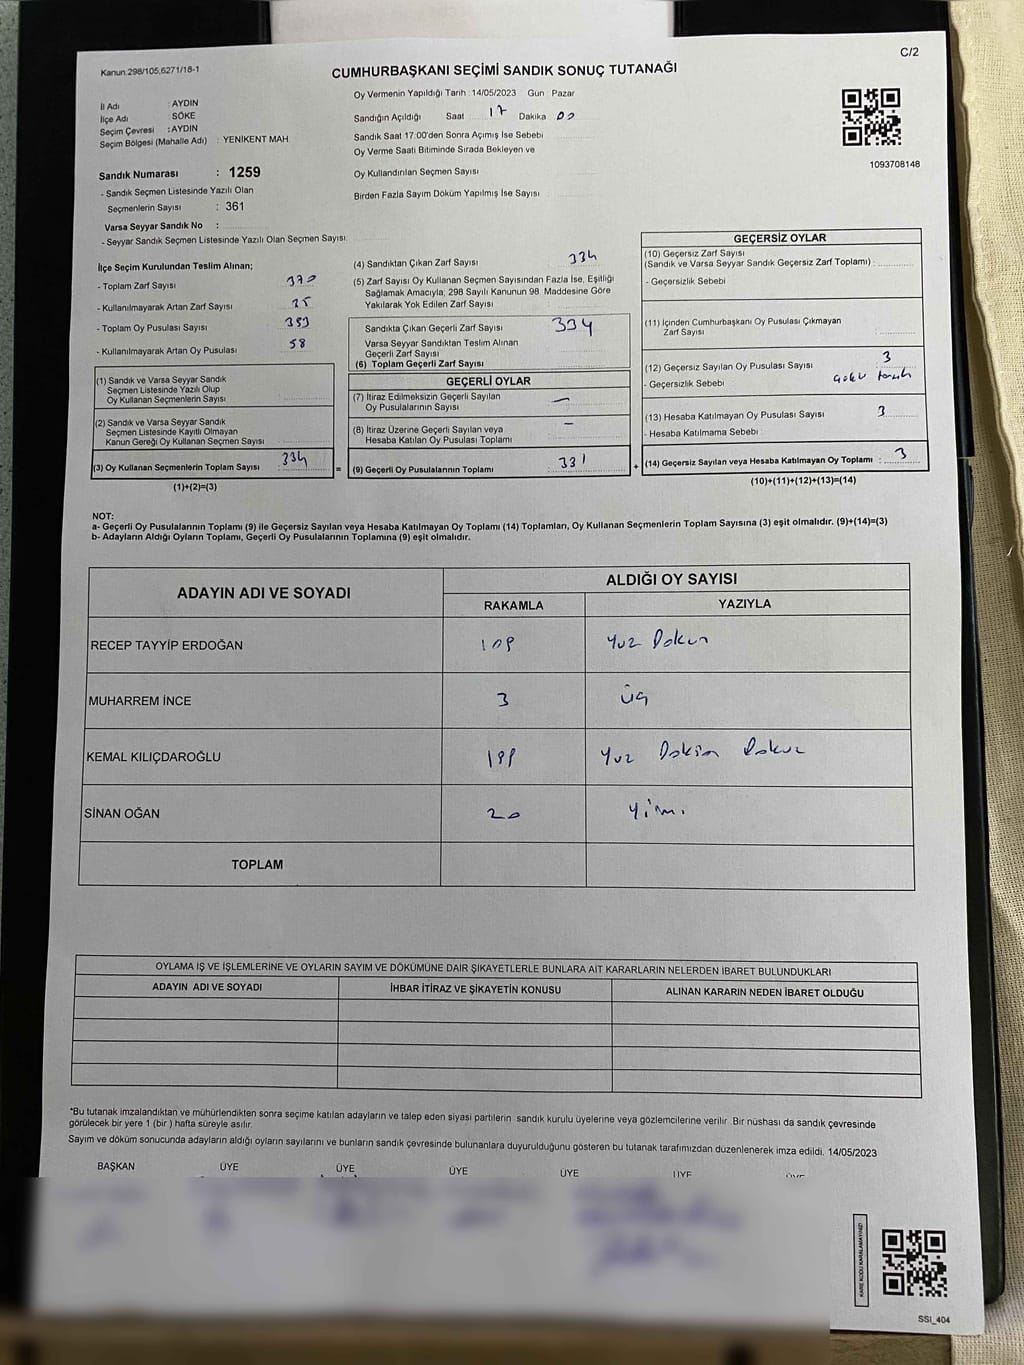 C/2
Kanun.298/105,6271/18-1
CUMHURBAŞKANI SEÇİMİ SANDIK SONUÇ TUTANAĞI
İl Adı : AYDIN
İlçe Adı : SÖKE
Seçim Çevresi : AYDIN
Seçim Bölgesi (Mahalle Adı) : YENİKENT MAH
Sandık Numarası : 1259
- Sandık Seçmen Listesinde Yazılı Olan
Seçmenlerin Sayısı : 361
Varsa Seyyar Sandık No :
- Seyyar Sandık Seçmen Listesinde Yazılı Olan Seçmen Sayısı:
Oy Vermenin Yapıldığı Tarih :14/05/2023 Gün : Pazar
Sandığın Açıldığı Saat 17 Dakika 00
Sandık Saat 17:00'den Sonra Açımış İse Sebebi
Oy Verme Saati Bitiminde Sırada Bekleyen ve
Oy Kullandırılan Seçmen Sayısı
Birden Fazla Sayım Döküm Yapılmış İse Sayısı
1093708148
İlçe Seçim Kurulundan Teslim Alınan;
- Toplam Zarf Sayısı : 370
- Kullanılmayarak Artan Zarf Sayısı :
- Toplam Oy Pusulası Sayısı :
- Kullanılmayarak Artan Oy Pusulası : 58
(1) Sandık ve Varsa Seyyar Sandık
Seçmen Listesinde Yazılı Olup
Oy Kullanan Seçmenlerin Sayısı :
(2) Sandık ve Varsa Seyyar Sandık
Seçmen Listesinde Kayıtlı Olmayan
Kanun Gereği Oy Kullanan Seçmen Sayısı :
(3) Oy Kullanan Seçmenlerin Toplam Sayısı : 334
(1)+(2)=(3)
(4) Sandıktan Çıkan Zarf Sayısı 334
(5) Zarf Sayısı Oy Kullanan Seçmen Sayısından Fazla İse, Eşitliği
Sağlamak Amacıyla; 298 Sayılı Kanunun 98. Maddesine Göre
Yakılarak Yok Edilen Zarf Sayısı
Sandıkta Çıkan Geçerli Zarf Sayısı 334
Varsa Seyyar Sandıktan Teslim Alınan
Geçerli Zarf Sayısı
(6) Toplam Geçerli Zarf Sayısı
GEÇERLİ OYLAR
(7) İtiraz Edilmeksizin Geçerli Sayılan
Oy Pusulalarının Sayısı : —
(8) İtiraz Üzerine Geçerli Sayılan veya
Hesaba Katılan Oy Pusulası Toplamı : —
= (9) Geçerli Oy Pusulalarının Toplamı : 331
GEÇERSİZ OYLAR
(10) Geçersiz Zarf Sayısı
(Sandık ve Varsa Seyyar Sandık Geçersiz Zarf Toplamı) :
- Geçersizlik Sebebi
(11) İçinden Cumhurbaşkanı Oy Pusulası Çıkmayan
Zarf Sayısı :
(12) Geçersiz Sayılan Oy Pusulası Sayısı : 3
- Geçersizlik Sebebi
(13) Hesaba Katılmayan Oy Pusulası Sayısı : 3
- Hesaba Katılmama Sebebi :
+ (14) Geçersiz Sayılan veya Hesaba Katılmayan Oy Toplamı : 3
(10)+(11)+(12)+(13)=(14)
NOT:
a- Geçerli Oy Pusulalarının Toplamı (9) ile Geçersiz Sayılan veya Hesaba Katılmayan Oy Toplamı (14) Toplamları, Oy Kullanan Seçmenlerin Toplam Sayısına (3) eşit olmalıdır. (9)+(14)=(3)
b- Adayların Aldığı Oyların Toplamı, Geçerli Oy Pusulalarının Toplamına (9) eşit olmalıdır.
ADAYIN ADI VE SOYADI
ALDIĞI OY SAYISI
RAKAMLA YAZIYLA
RECEP TAYYİP ERDOĞAN 109 Yuz Dokuz
MUHARREM İNCE 3 üç
KEMAL KILIÇDAROĞLU 199 Yuz Doksan Dokuz
SİNAN OĞAN 20 Yirmi
TOPLAM
OYLAMA İŞ VE İŞLEMLERİNE VE OYLARIN SAYIM VE DÖKÜMÜNE DAİR ŞİKAYETLERLE BUNLARA AİT KARARLARIN NELERDEN İBARET BULUNDUKLARI
ADAYIN ADI VE SOYADI İHBAR İTİRAZ VE ŞİKAYETİN KONUSU ALINAN KARARIN NEDEN İBARET OLDUĞU
*Bu tutanak imzalandıktan ve mühürlendikten sonra seçime katılan adayların ve talep eden siyasi partilerin sandık kurulu üyelerine veya gözlemcilerine verilir. Bir nüshası da sandık çevresinde
görülecek bir yere 1 (bir ) hafta süreyle asılır.
Sayım ve döküm sonucunda adayların aldığı oyların sayılarını ve bunların sandık çevresinde bulunanlara duyurulduğunu gösteren bu tutanak tarafımızdan düzenlenerek imza edildi. 14/05/2023
BAŞKAN ÜYE ÜYE ÜYE ÜYE ÜYE ÜYE
KARE KODU KARALAMAYINIZ!
SSI_404